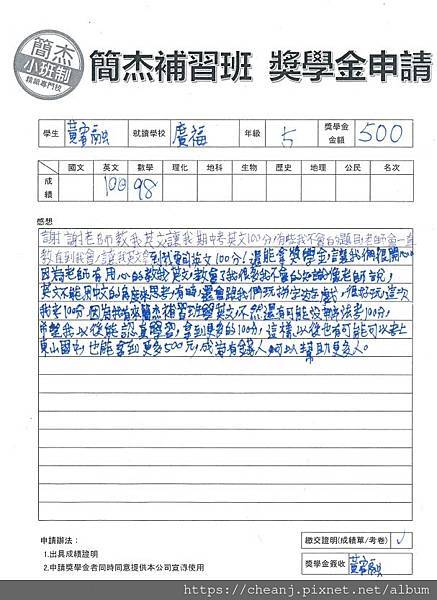 簡杰
小班制
精緻專門校
簡杰補習班 獎學金申請
學生 黃睿
就讀學校 廣福
年級 5
獎學金金額 500
國文 英文 數學 理化 地科 生物 歷史 地理 公民 名次
成績 100 98
感想
謝謝老師教我英文讓我期中考英文100分,有些我不會的題目老師會一直
教直到我會,讓我英文拿到100分!還能拿獎學金讓我們很開心
因為老師有用心的教我英文,教會了我很多我不會的知識像老師說,
英文不能用中文的角度來思考,有時還會跟我們玩拼字遊戲,很好玩這次
我考100分因為我有來簡杰補習班學英文,不然還有可能沒辦法考100分,
希望我以後能認真學習,拿到更多的100分,這樣以後也有可能可以考上
東山國中,也能拿到更多500元,成為有錢人可以幫助更多人。
申請辦法:
1.出具成績證明
2.申請獎學金者同時同意提供本公司宣傳使用
繳交證明(成績單/考卷) ✓
獎學金簽收 黃睿
https://cheanj.pixnet.net/album